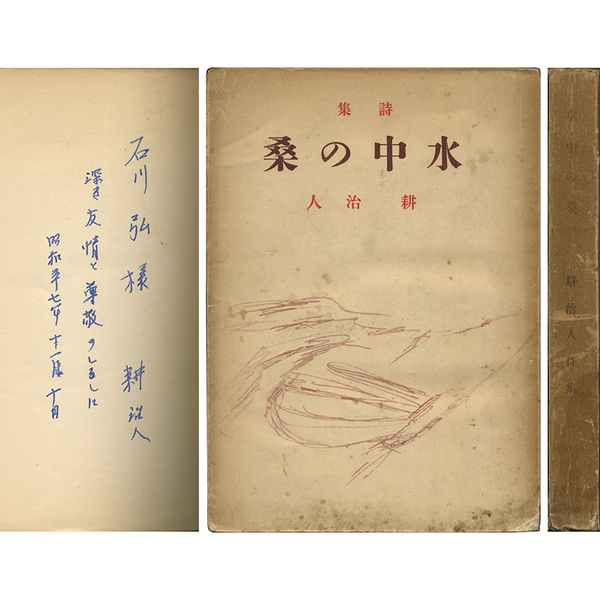 石川弘様 耕治人
深き友情と尊敬のしるしに
昭和 十七年 十一月 十日
詩集
水中の桑
耕治人
水中の桑 耕治人詩集